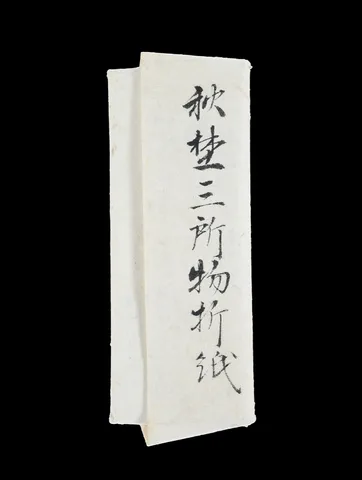 秋埜三所物折紙